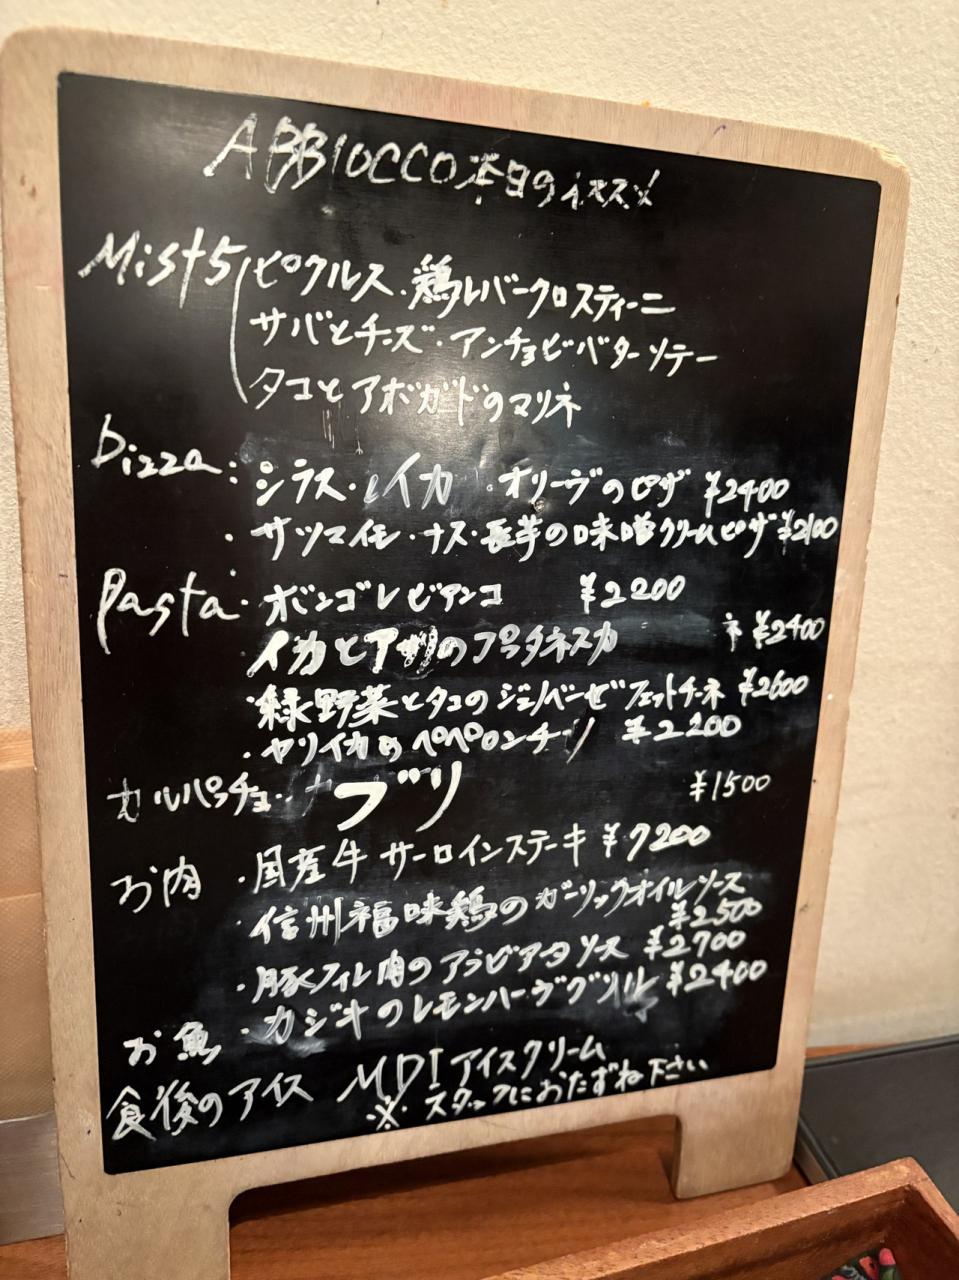 ABBIOCCO本日のオススメ
Mist5 ピクルス・鶏レバークロスティーニ
サバとチーズ・アンチョビバターソテー
タコとアボガドのマリネ
Pizza: シラス・イカ・オリーヴのピザ ¥2400
・サツマイモ・ナス・長芋の味噌クリームピザ ¥2100
Pasta・ボンゴレビアンコ ¥2200
イカとアサリのプッタネスカ ¥2400
・緑野菜とタコのジェノベーゼフェットチーネ ¥2600
・ヤリイカのペペロンチーノ ¥2200
カルパッチョ・ブリ ¥1500
お肉・国産牛サーロインステーキ ¥7200
・信州福味鶏のガーリックオイルソース
¥2500
・豚フィレ肉のアラビアータソース ¥2700
お魚・カジキのレモンハーヴグリル ¥2400
食後のアイス アイスクリーム
※スタッフにおたずね下さい